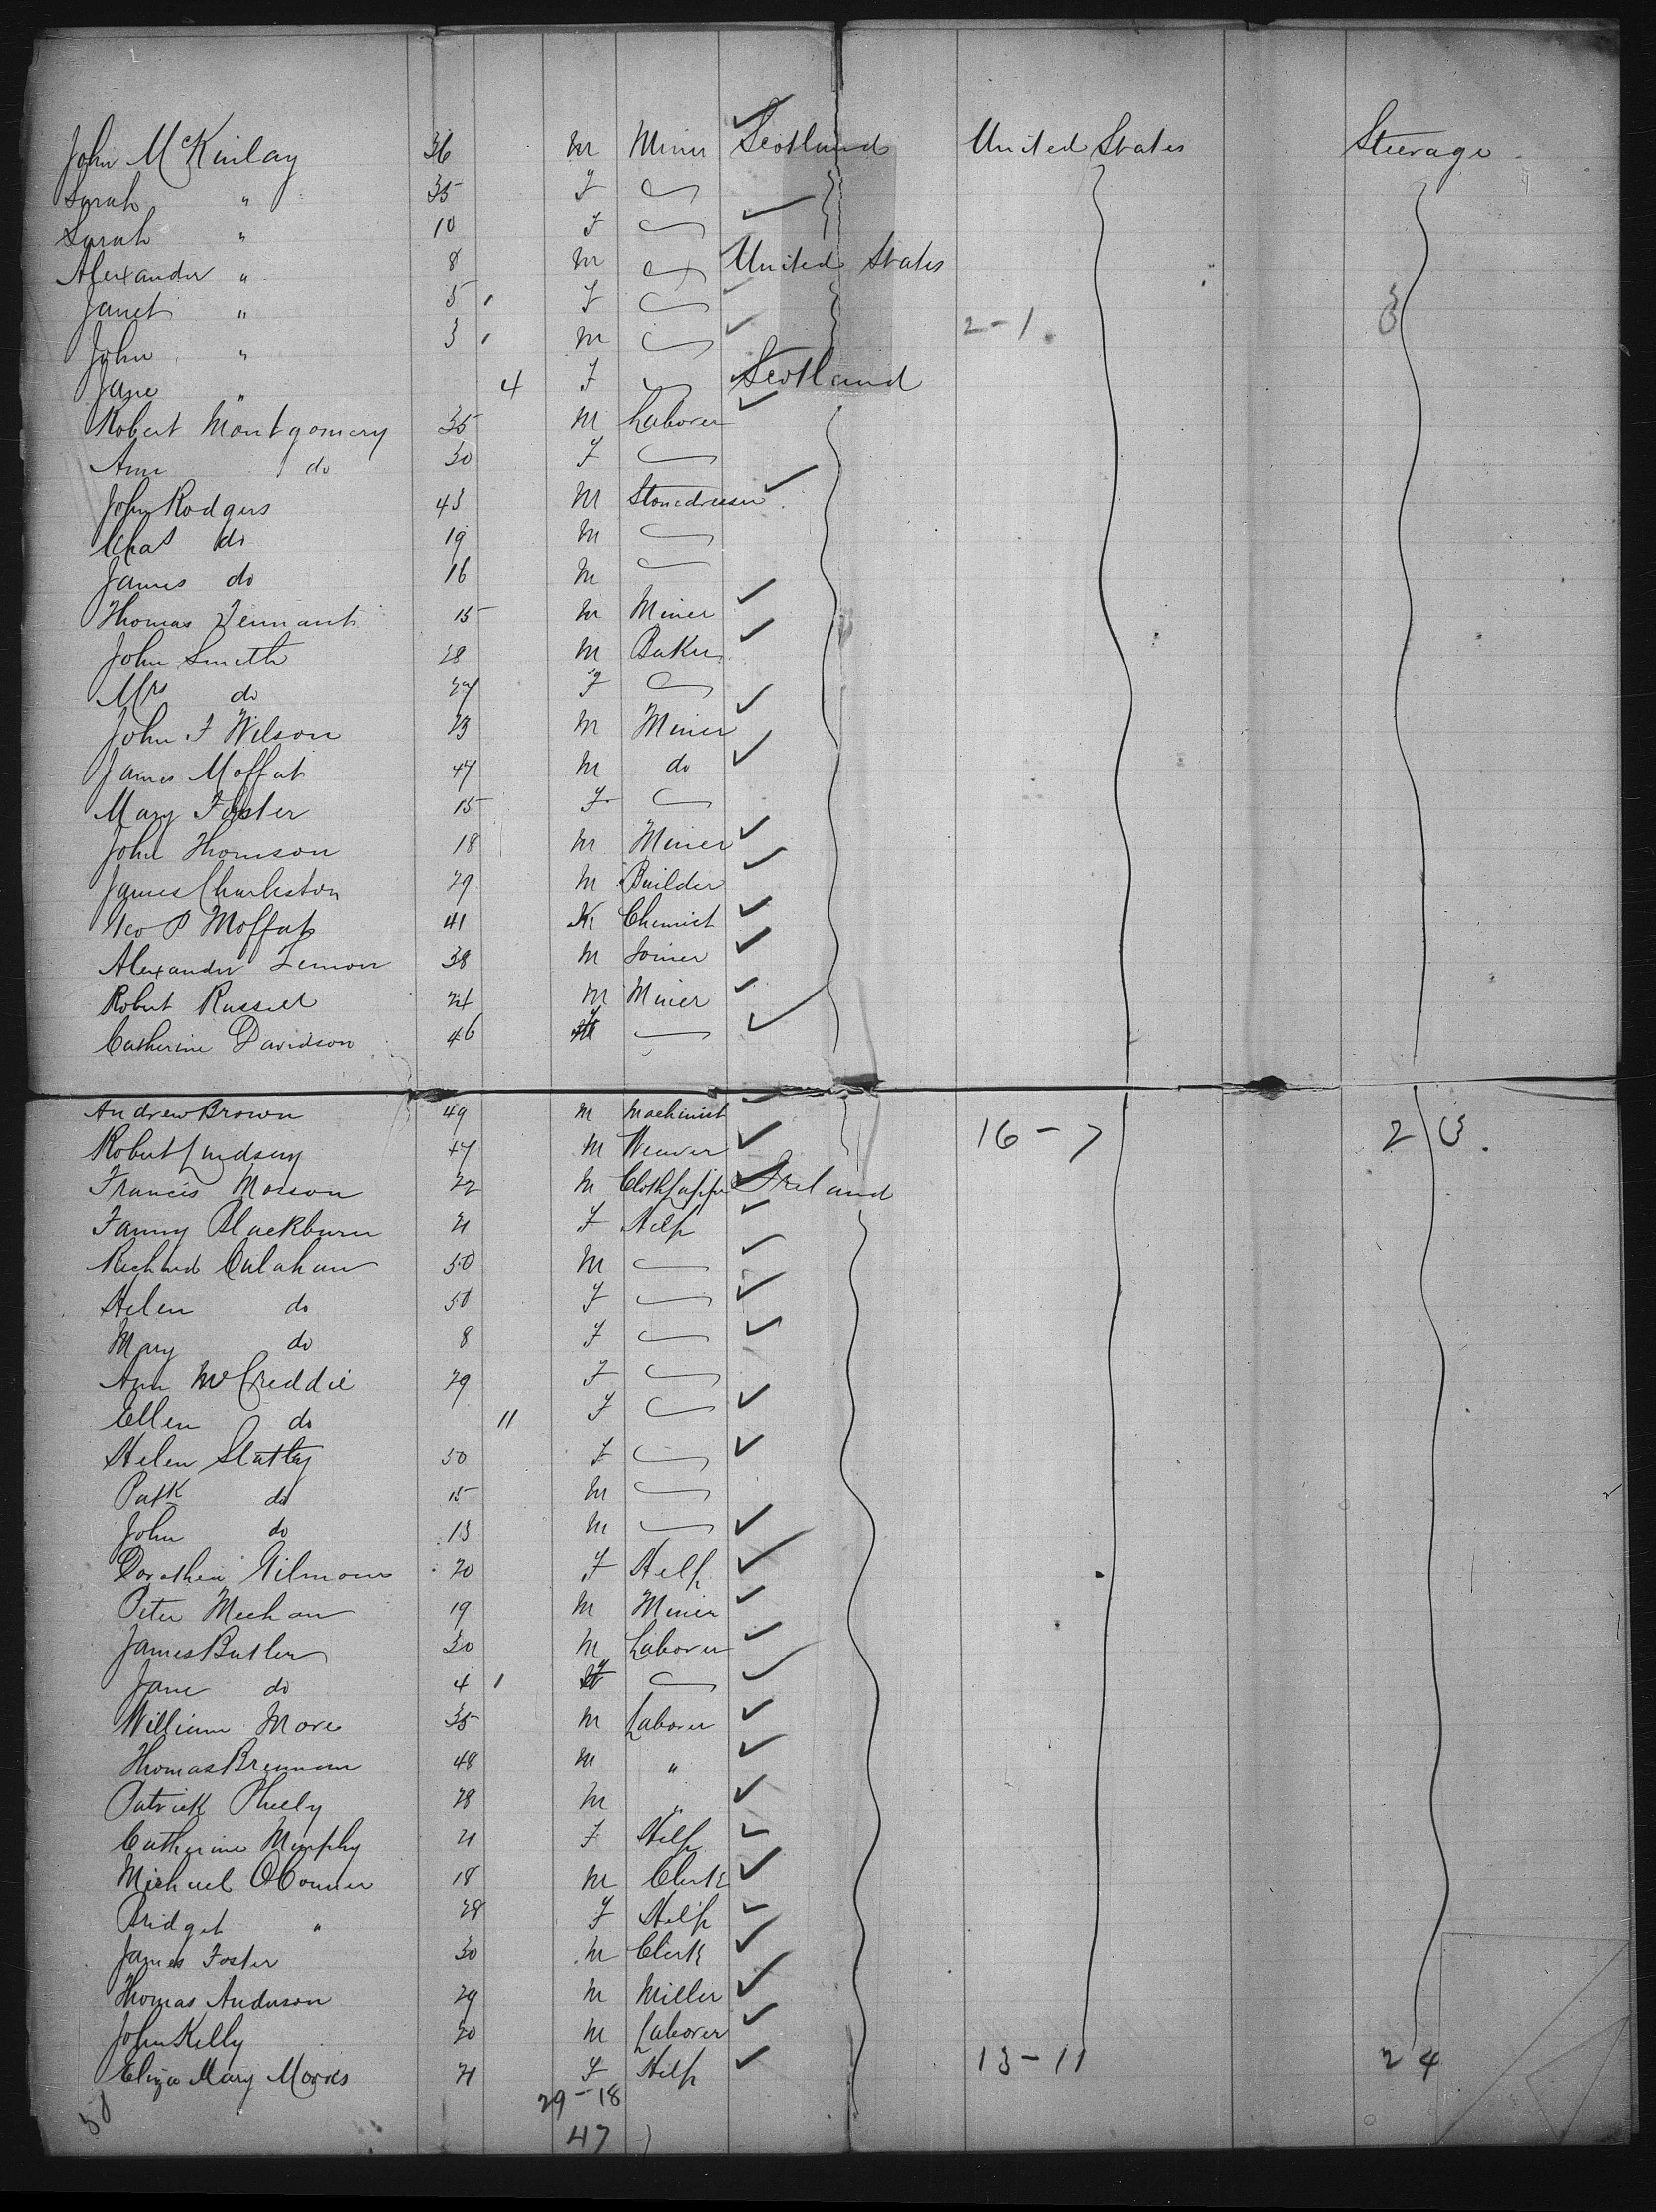 John McKinlay 36 M Miner Scotland United States Steerage
Sarah " 35 F
Sarah " 10 F
Alexander " 8 M United States
Janet " 5 F
John " 3 M 2-1 3
Jane " 4 F Scotland
Robert Montgomery 35 M Laborer
Ann do 30 F
John Rodgers 43 M Stonedresser
Chas do 19 M
James do 16 M
Thomas Tennant 15 M Miner
John Smith 28 M Baker
Mrs do 27 F
John F Wilson 23 M Miner
James Moffat 47 M do
Mary Foster 15 F
John Thomson 18 M Miner
James Charleston 29 M Builder
Geo P Moffat 41 M Chemist
Alexander Lemon 38 M Joiner
Robert Russell 24 M Miner
Catherine Davidson 46 F
Andrew Brown 49 M Machinist 16-7 23.
Robert Lindsay 47 M Weaver
Francis Mosson 22 M Clothlapper Ireland
Fanny Blackburn 21 F Help
Richard Calahan 50 M
Helen do 50 F
Mary do 8 F
Ann McCreddie 29 F
Ellen do 11 F
Helen Slattey 50 F
Patk do 15 M
John do 13 M
Dorothea Gilmour 20 F Help
Peter Meehan 19 M Miner
James Butler 30 M Laborer
Jane do 4 F
William More 35 M Laborer
Thomas Brennan 48 M "
Patrick Pheely 28 M "
Catherine Murphy 21 F Help
Michael OConner 18 M Clerk
Bridget " 28 F Help
James Foster 30 M Clerk
Thomas Anderson 29 M Miller
John Kelly 20 M Laborer
Eliza Mary Morris 21 F Help 13-11 24
29-18
50 47